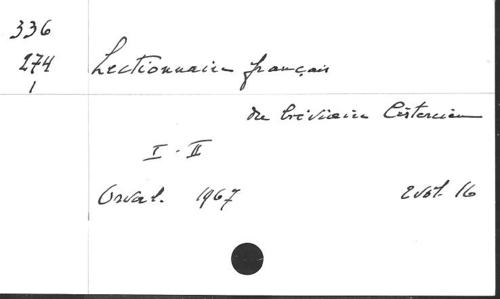 336
274 Lectionnaire français
1
du bréviaire Cistercien
I - II
Orval. 1967 2 vol. 16